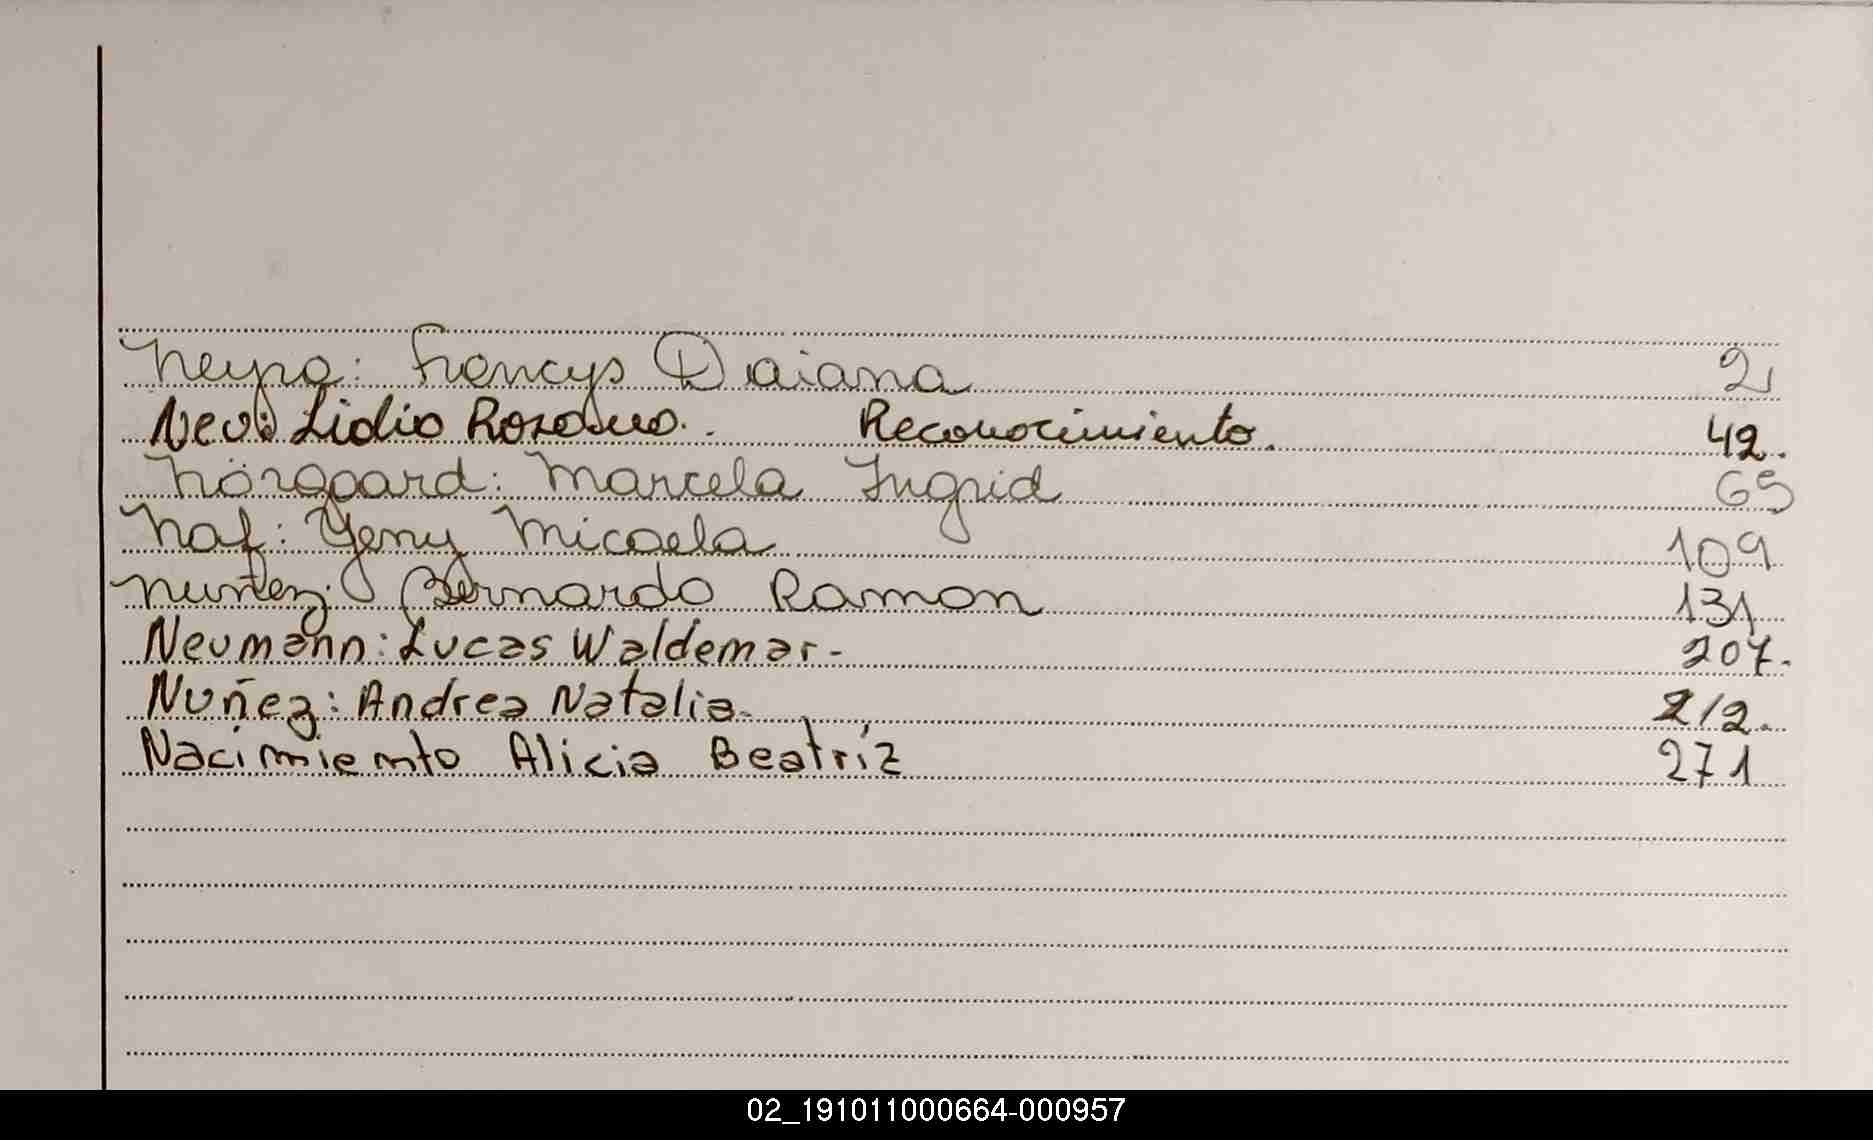 Neyra: Francys Daiana 2
Neo: Lidio Rozando. Reconocimiento. 42.
Nörgaard: Marcela Ingrid 65
Naf: Yeny Micaela 109
Nuñez: Bernardo Ramon 131
Neumann: Lucas Waldemar- 207.
Nuñez: Andrea Natalia. 212.
Nacimiento Alicia Beatríz 271
02_191011000664-000957